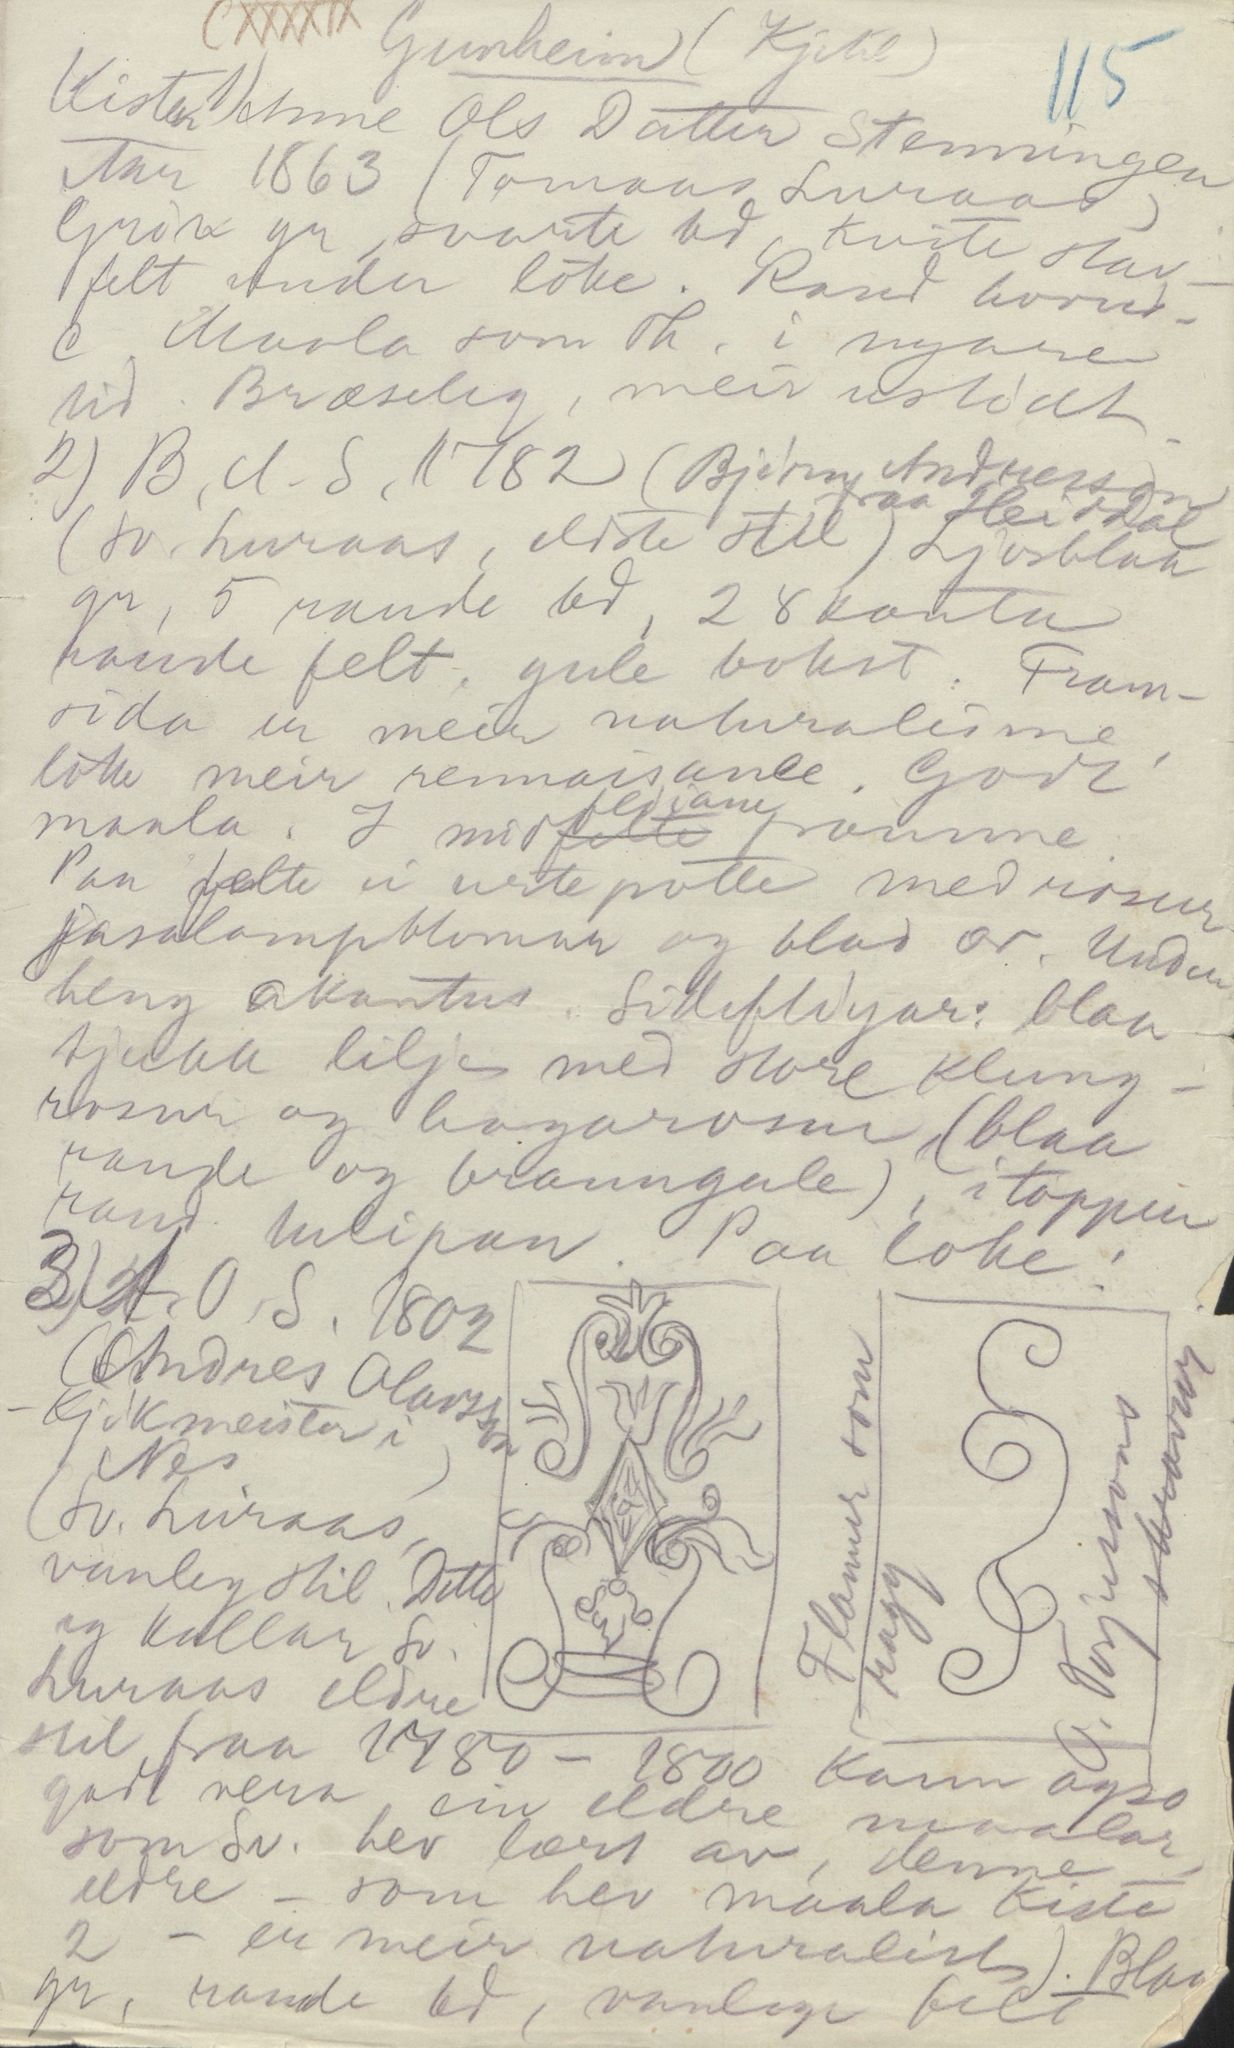 CXXXXIX
Gunheim (Kjetil)
115
Kister 1) Anne Ols Datter Stenningen
Aar 1863 (Tomaas Luraas)
Grøn gr, svarte bd, kvite skav-
felt under loke. Raud
Maala som Th. i nyare
tid. Bræseleg, meir ustødt.
2) B. A. S. 1782 (Bjørn Andresson
fraa Heiddal
(Sv. Luraas, eldste stil) Ljosblaa
gr, 5 raude bd, 2 8 kanta
raude felt, gule bokst. Fram-
sida er meir naturalisme,
loke meir rennaisance. Godt
maala. I mid feltjane
felte ramme.
Paa felte ei urtepotte med rosur
jasalampblomar og blad or. Under
heng akantus. Sidefløyar: blaa
lilje med store klung-
rosur og hagarosur (blaa
raude og braungule), i toppen
raud tulipan. Paa loke:
3) A. O. S. 1802
(Andres Olavsson
Kjøkmeister i
Nes)
(Sv. Luraas,
vanleg stil. Dette
eg kallar Sv.
Luraas eldre
stil fraa 1780 - 1800 kann ogso
godt vera ein eldre maalar,
som Sv. hev lært av, denne
eldre - som hev maala kiste
2 - er meir naturalist). Blaa
gr, raude bd, vanlege felt
Flamer som
ragg
O. Torjussons
skravur